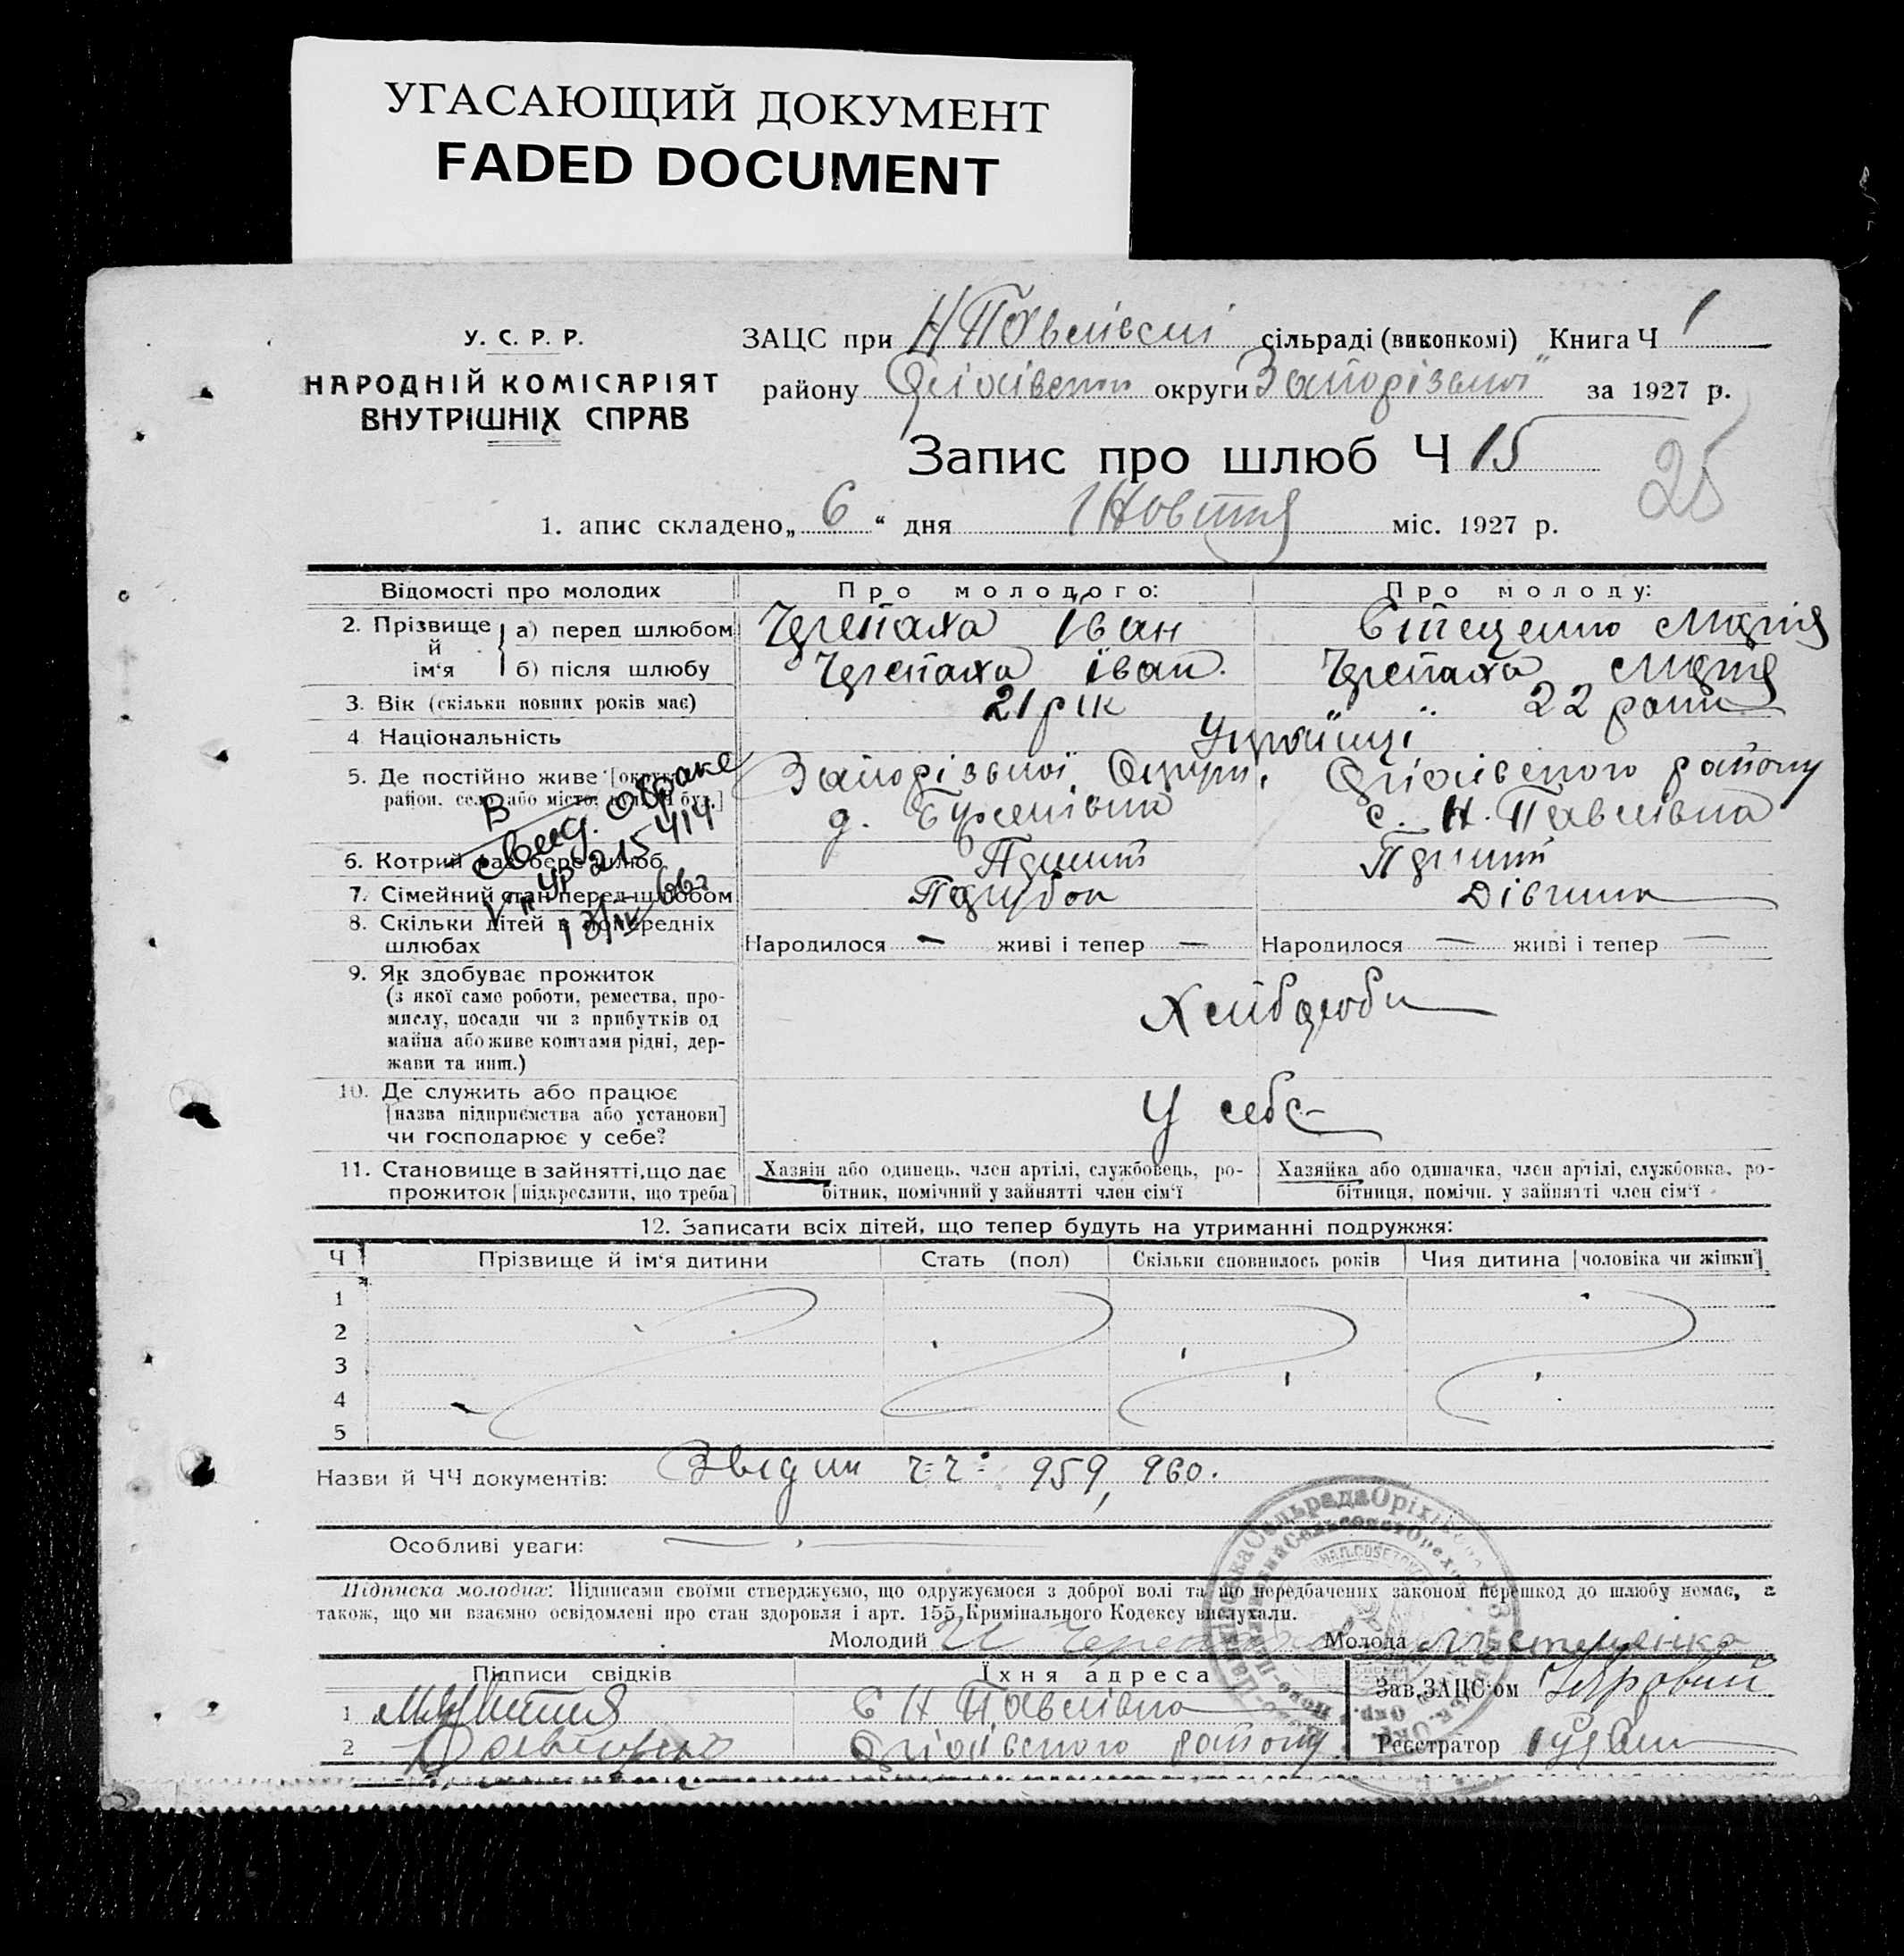 УГАСАЮЩИЙ ДОКУМЕНТ
FADED DOCUMENT
У. С. Р. Р.
НАРОДНІЙ КОМІСАРІЯТ
ВНУТРІШНІХ СПРАВ
ЗАЦС при Н Павлівскі сільраді (виконкомі) Книга Ч 1
району Оріхівського округи Запорізької за 1927 р.
Запис про шлюб Ч 15
25
1. апис складено „ 6 “ дня Жовтня міс. 1927 р.
Відомості про молодих Про молодого: Про молоду:
2. Прізвище й ім‘я а) перед шлюбом Черепаха Іван Стеценко Марія
б) після шлюбу Черепаха Іван. Черепаха Марія
3. Вік (скільки повних років має) 21 рік 22 роки
4 Національність Українці
5. Де постійно живе [округа, Запорізької Округи, Оріхівського району
район. село або місто, вул., Ч буд.] с. Н. Павлівка
6. Котрий раз бере шлюб Перший Перший
7. Сімейний стан перед шлюбом Парубок Дівчина
8. Скільки дітей в попередніх
шлюбах Народилося — живі і тепер — Народилося — живі і тепер —
В свид. о браке
УР 215414
9. Як здобуває прожиток
(з якої саме роботи, ремества, про-
мислу, посади чи з прибутків од
майна або живе коштами рідні, дер-
жави та инш.)
Хліборюби
10. Де служить або працює
[назва підприємства або установи]
чи господарює у себе?
У себе
11. Становище в зайнятті, що дає Хазяін або одинець, член артілі, службовець, ро- Хазяйка або одиначка, член артілі, службовка, ро-
прожиток [підкреслити, що треба] бітник, помічний у зайнятті член сім‘ї бітниця, помічн. у зайнятті член сім‘ї
12. Записати всіх дітей, що тепер будуть на утриманні подружжя:
Ч Прізвище й ім‘я дитини Стать (пол) Скільки сповнилось років Чия дитина [чоловіка чи жінки]
1
2
3
4
5
Назви й ЧЧ документів: Звідки ч.ч. 959, 960.
Особливі уваги: —
Підписка молодих: Підписами своїми стверджуємо, що одружуємося з доброї волі та що передбачених законом перешкод до шлюбу немає, а
також, що ми взаємно освідомлені про стан здоровля і арт. 155 Кримінального Кодексу вислухали.
Молодий И Черепаха Молода М Стеценко
Підписи свідків Їхня адреса Зав. ЗАЦС‘ом
1 С Н Павлівка
2 Оріхівського району Реєстратор